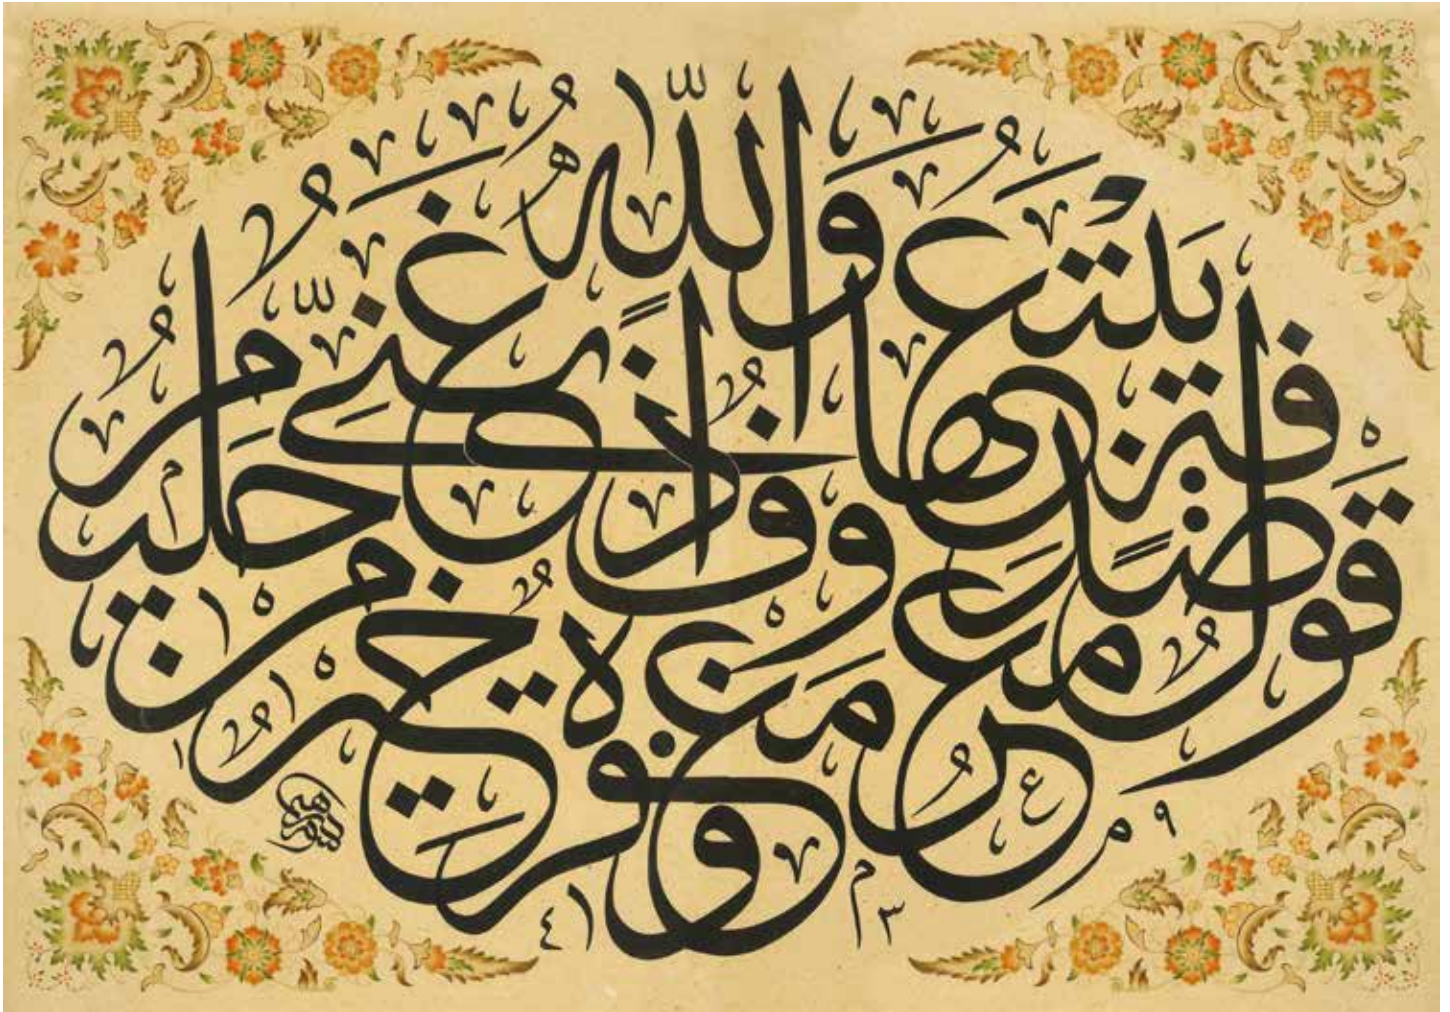 قَوْلٌ مَعْرُوفٌ وَمَغْفِرَةٌ خَيْرٌ مِنْ صَدَقَةٍ يَتْبَعُهَا أَذًى وَاللّٰهُ غَنِيٌّ حَلِيمٌ